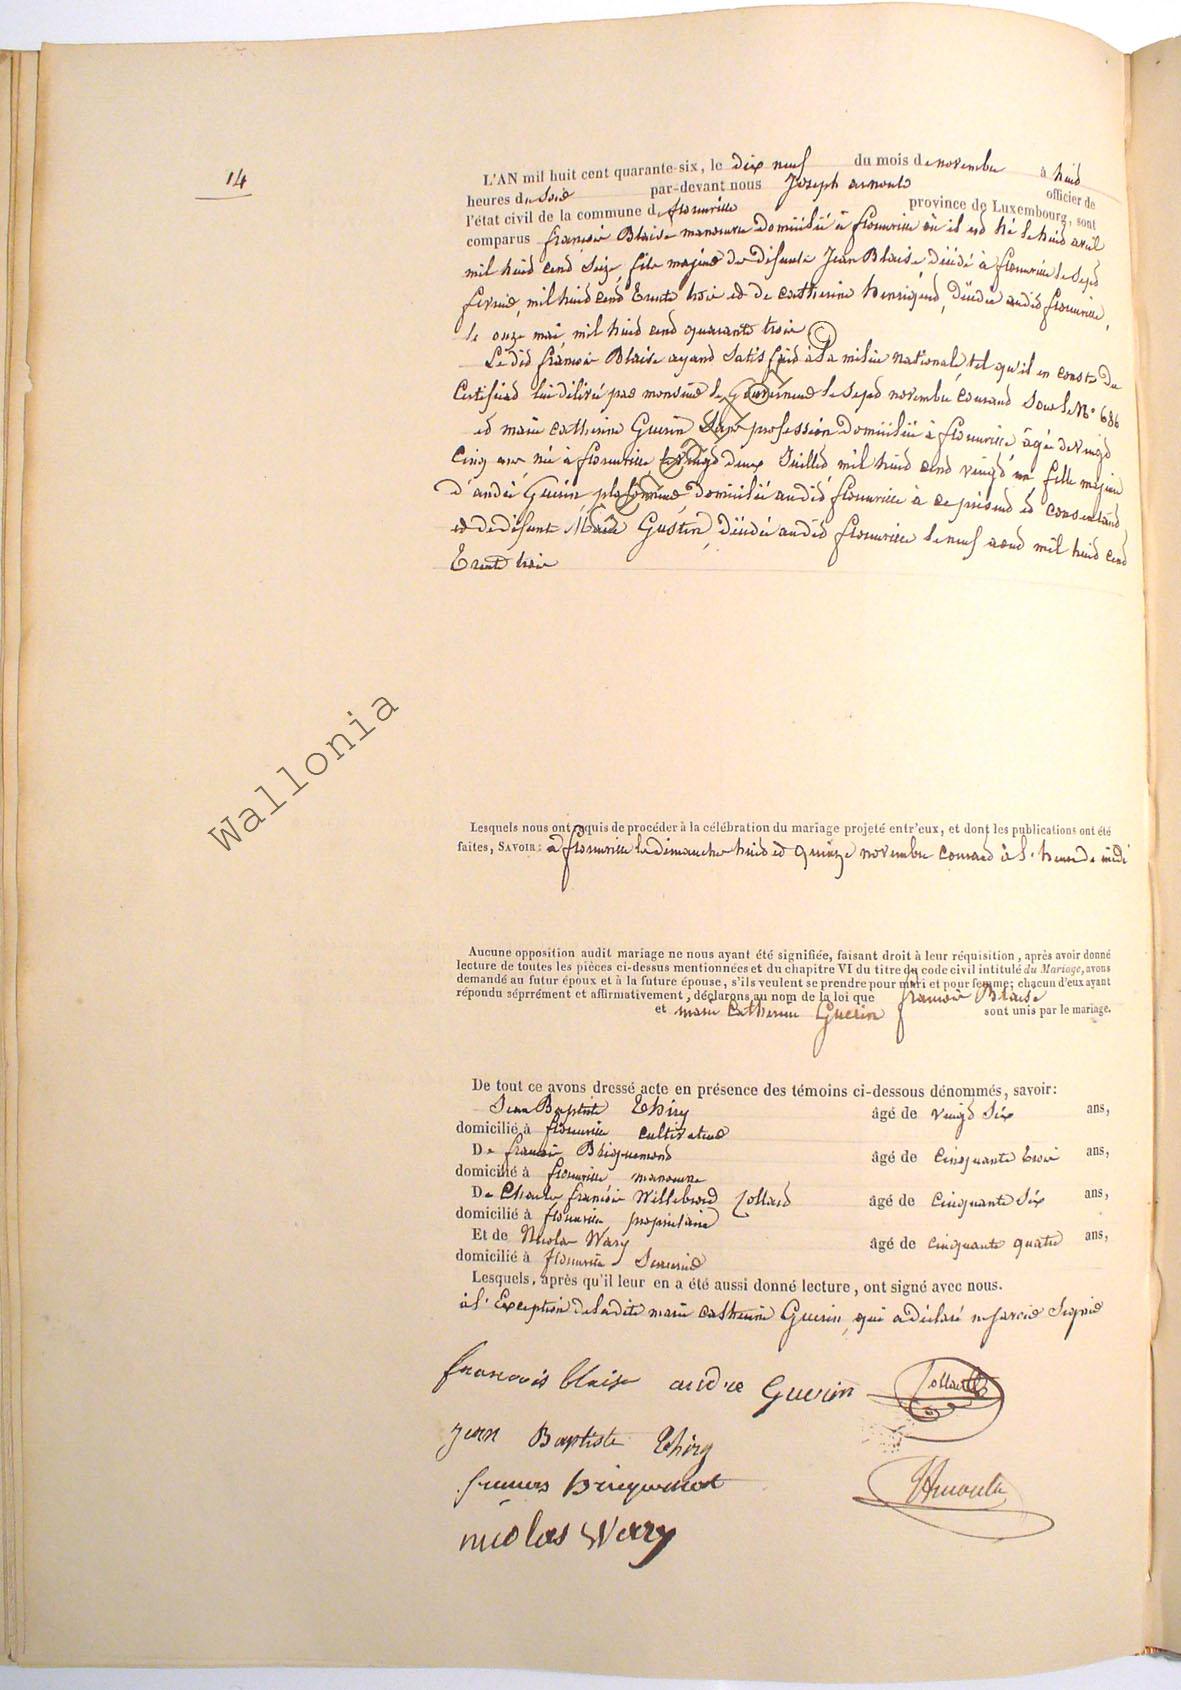 14
L'AN mil huit cent quarante-six, le dix neuf du mois de novembre à huit
heures du Soir par-devant nous Joseph arnould officier de
l'état civil de la commune de florenville province de Luxembourg, sont
comparus françois Blaise manoeuvre domicilié à florenville où il est né le huit avril
mil huit cent Seize, fils majeur de défunts Jean Blaise décédé à florenville le Sept
fevrier, mil huit cent trente trois et de catherine henrigent, décédée audit florenville,
le onze mai, mil huit cent quarante trois
Le dit françois Blaise ayant Satisfait à la milice national, tel qu'il en conste du
Certificat lui délivré par monsieur le Gouverneur le Sept novembre courant Sous le N° 686
et marie catherine Guerin Sans profession domiciliée à florenville âgée de vingt
cinq ans née à florenville, le vingt deux Juillet mil huit cent vingt un fille majeure
d'andré Guerin, domicilié audit florenville à ce présent et consentant
et de défunte Marie Gustin, décédée audit florenville le neuf aout mil huit cent
trente trois
Wallonia
Lesquels nous ont requis de procéder à la célébration du mariage projeté entr'eux, et dont les publications ont été
faites, SAVOIR: à florenville les dimanches huit et quinze novembre courant à l'heure de midi
Aucune opposition audit mariage ne nous ayant été signifiée, faisant droit à leur réquisition, après avoir donné
lecture de toutes les pièces ci-dessus mentionnées et du chapitre VI du titre du code civil intitulé du Mariage, avons
demandé au futur époux et à la future épouse, s'ils veulent se prendre pour mari et pour femme; chacun d'eux ayant
répondu séprrément et affirmativement, déclarons au nom de la loi que françois Blaise
et marie Catherine Guerin sont unis par le mariage.
De tout ce avons dressé acte en présence des témoins ci-dessous dénommés, savoir:
Jean Baptiste Thiry âgé de vingt Six ans,
domicilié à florenville cultivateur
De françois Bricquemont âgé de Cinquante trois ans,
domicilié à florenville manoeuvre
De Charles françois Willebrord Collard âgé de Cinquante Six ans,
domicilié à florenville propriétaire
Et de Nicolas Wary âgé de cinquante quatre ans,
domicilié à florenville Serrurier
Lesquels, après qu'il leur en a été aussi donné lecture, ont signé avec nous.
à l'Exception de ladite marie catherine Guerin, qui a déclaré ne Savoir Signer
francois blaise andre Guerin Collard
jean Baptiste thiry
francois bricquemont JArnould
nicolas Wary